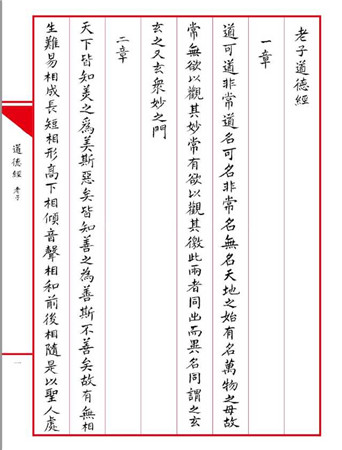 老子道德經
一章
道可道非常道名可名非常名無名天地之始有名萬物之母故
常無欲以觀其妙常有欲以觀其徼此兩者同出而異名同謂之玄
玄之又玄眾妙之門
二章
天下皆知美之為美斯惡矣皆知善之為善斯不善矣故有無相
生難易相成長短相形高下相傾音聲相和前後相隨是以聖人處
道德經 老子
一